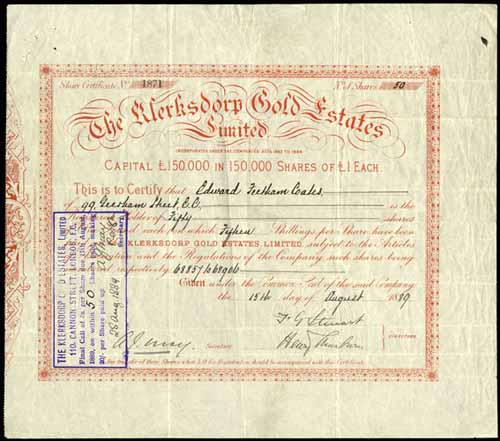 Share Certificate No 1871 No of Shares 50
The Klerksdorp Gold Estates
Limited
INCORPORATED UNDER THE COMPANIES ACTS 1862 TO 1886
CAPITAL £150,000 IN 150,000 SHARES OF £1 EACH.
This is to Certify that Edward Feetham Coates
of 99, Gresham Street, E.C. is the
of Fifty shares
each of which Fifteen Shillings per Share have been
KLERKSDORP GOLD ESTATES, LIMITED subject to the Articles
and the Regulations of the Company such shares being
respectively 68857/68906
Given under the Common Seal of the said Company
the 15th day of August 1889
F G Stewart
Secretary
DIRECTORS
THE KLERKSDORP GOLD ESTATES, LIMITED
110, CANNON STREET, LONDON, E.C.
Final Call of 5s. per Share due 15th August,
1889, on within 50 Shares paid, making
20/- per Share paid up.
28 Aug 1889
Secretary.